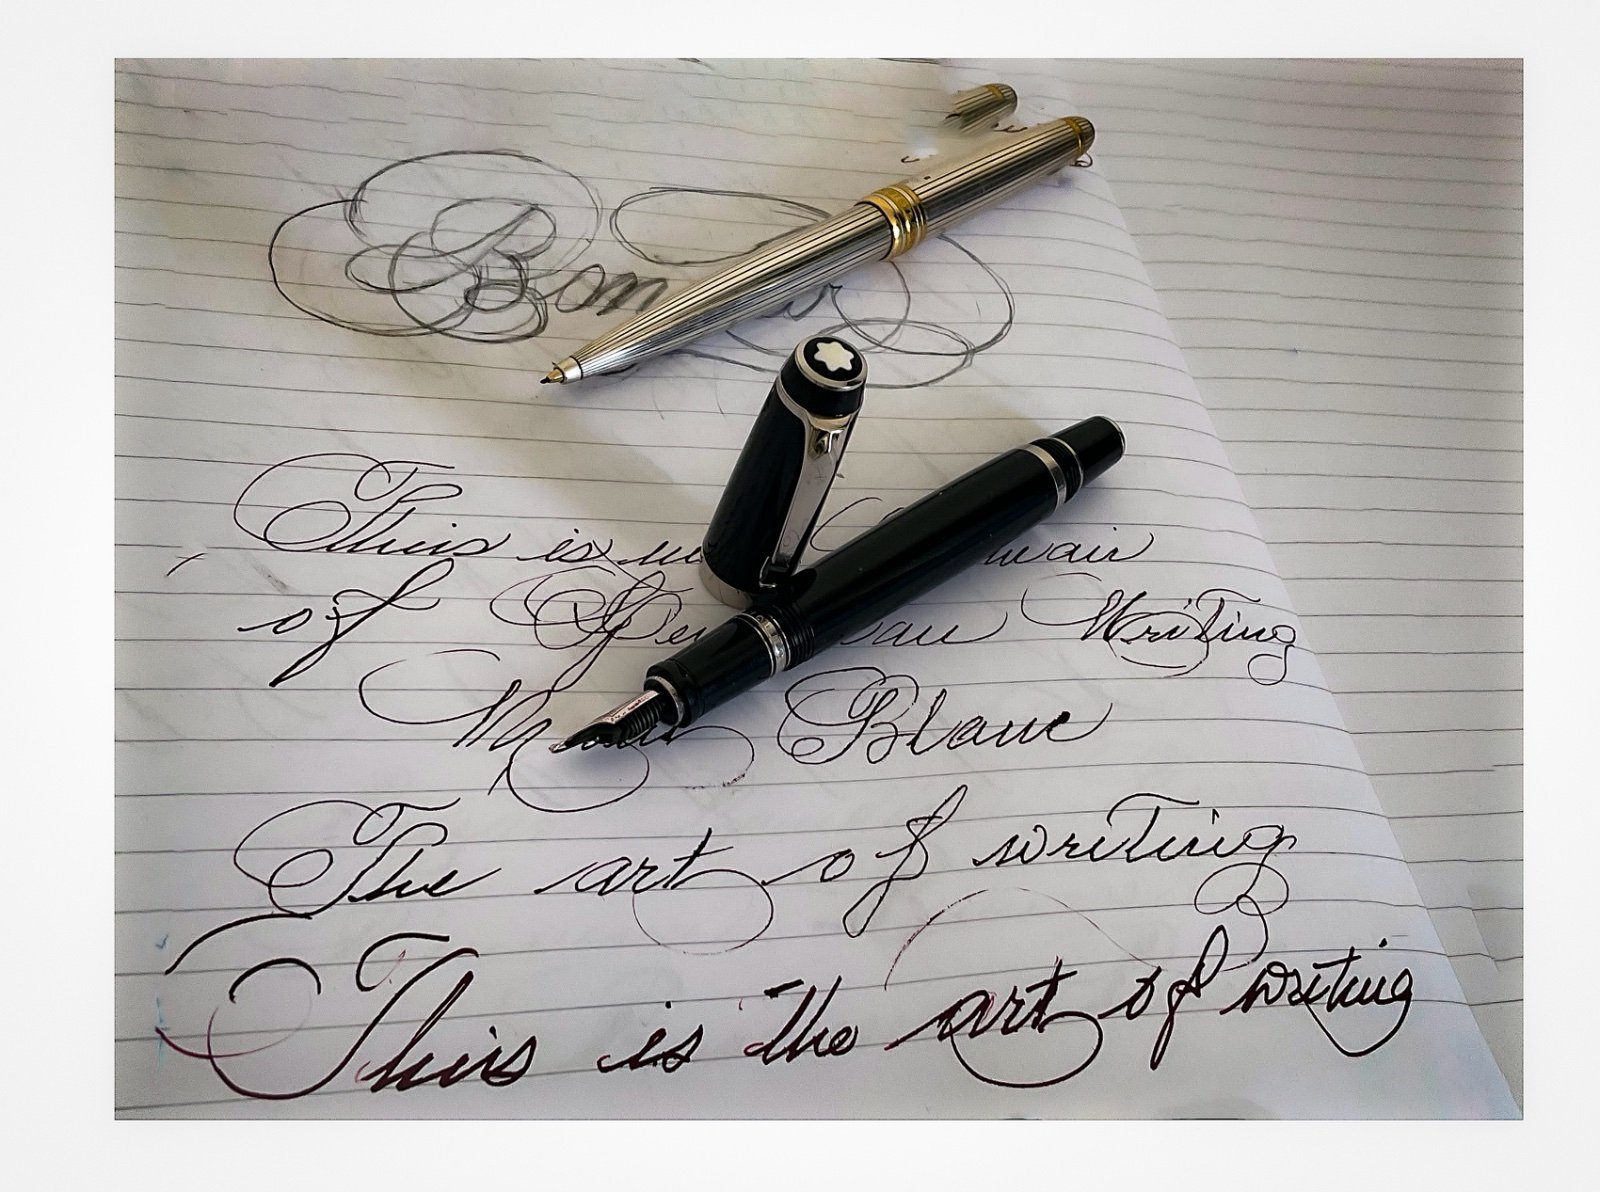 This is
of Writing
Blanc
The art of writing
This is the art of writing